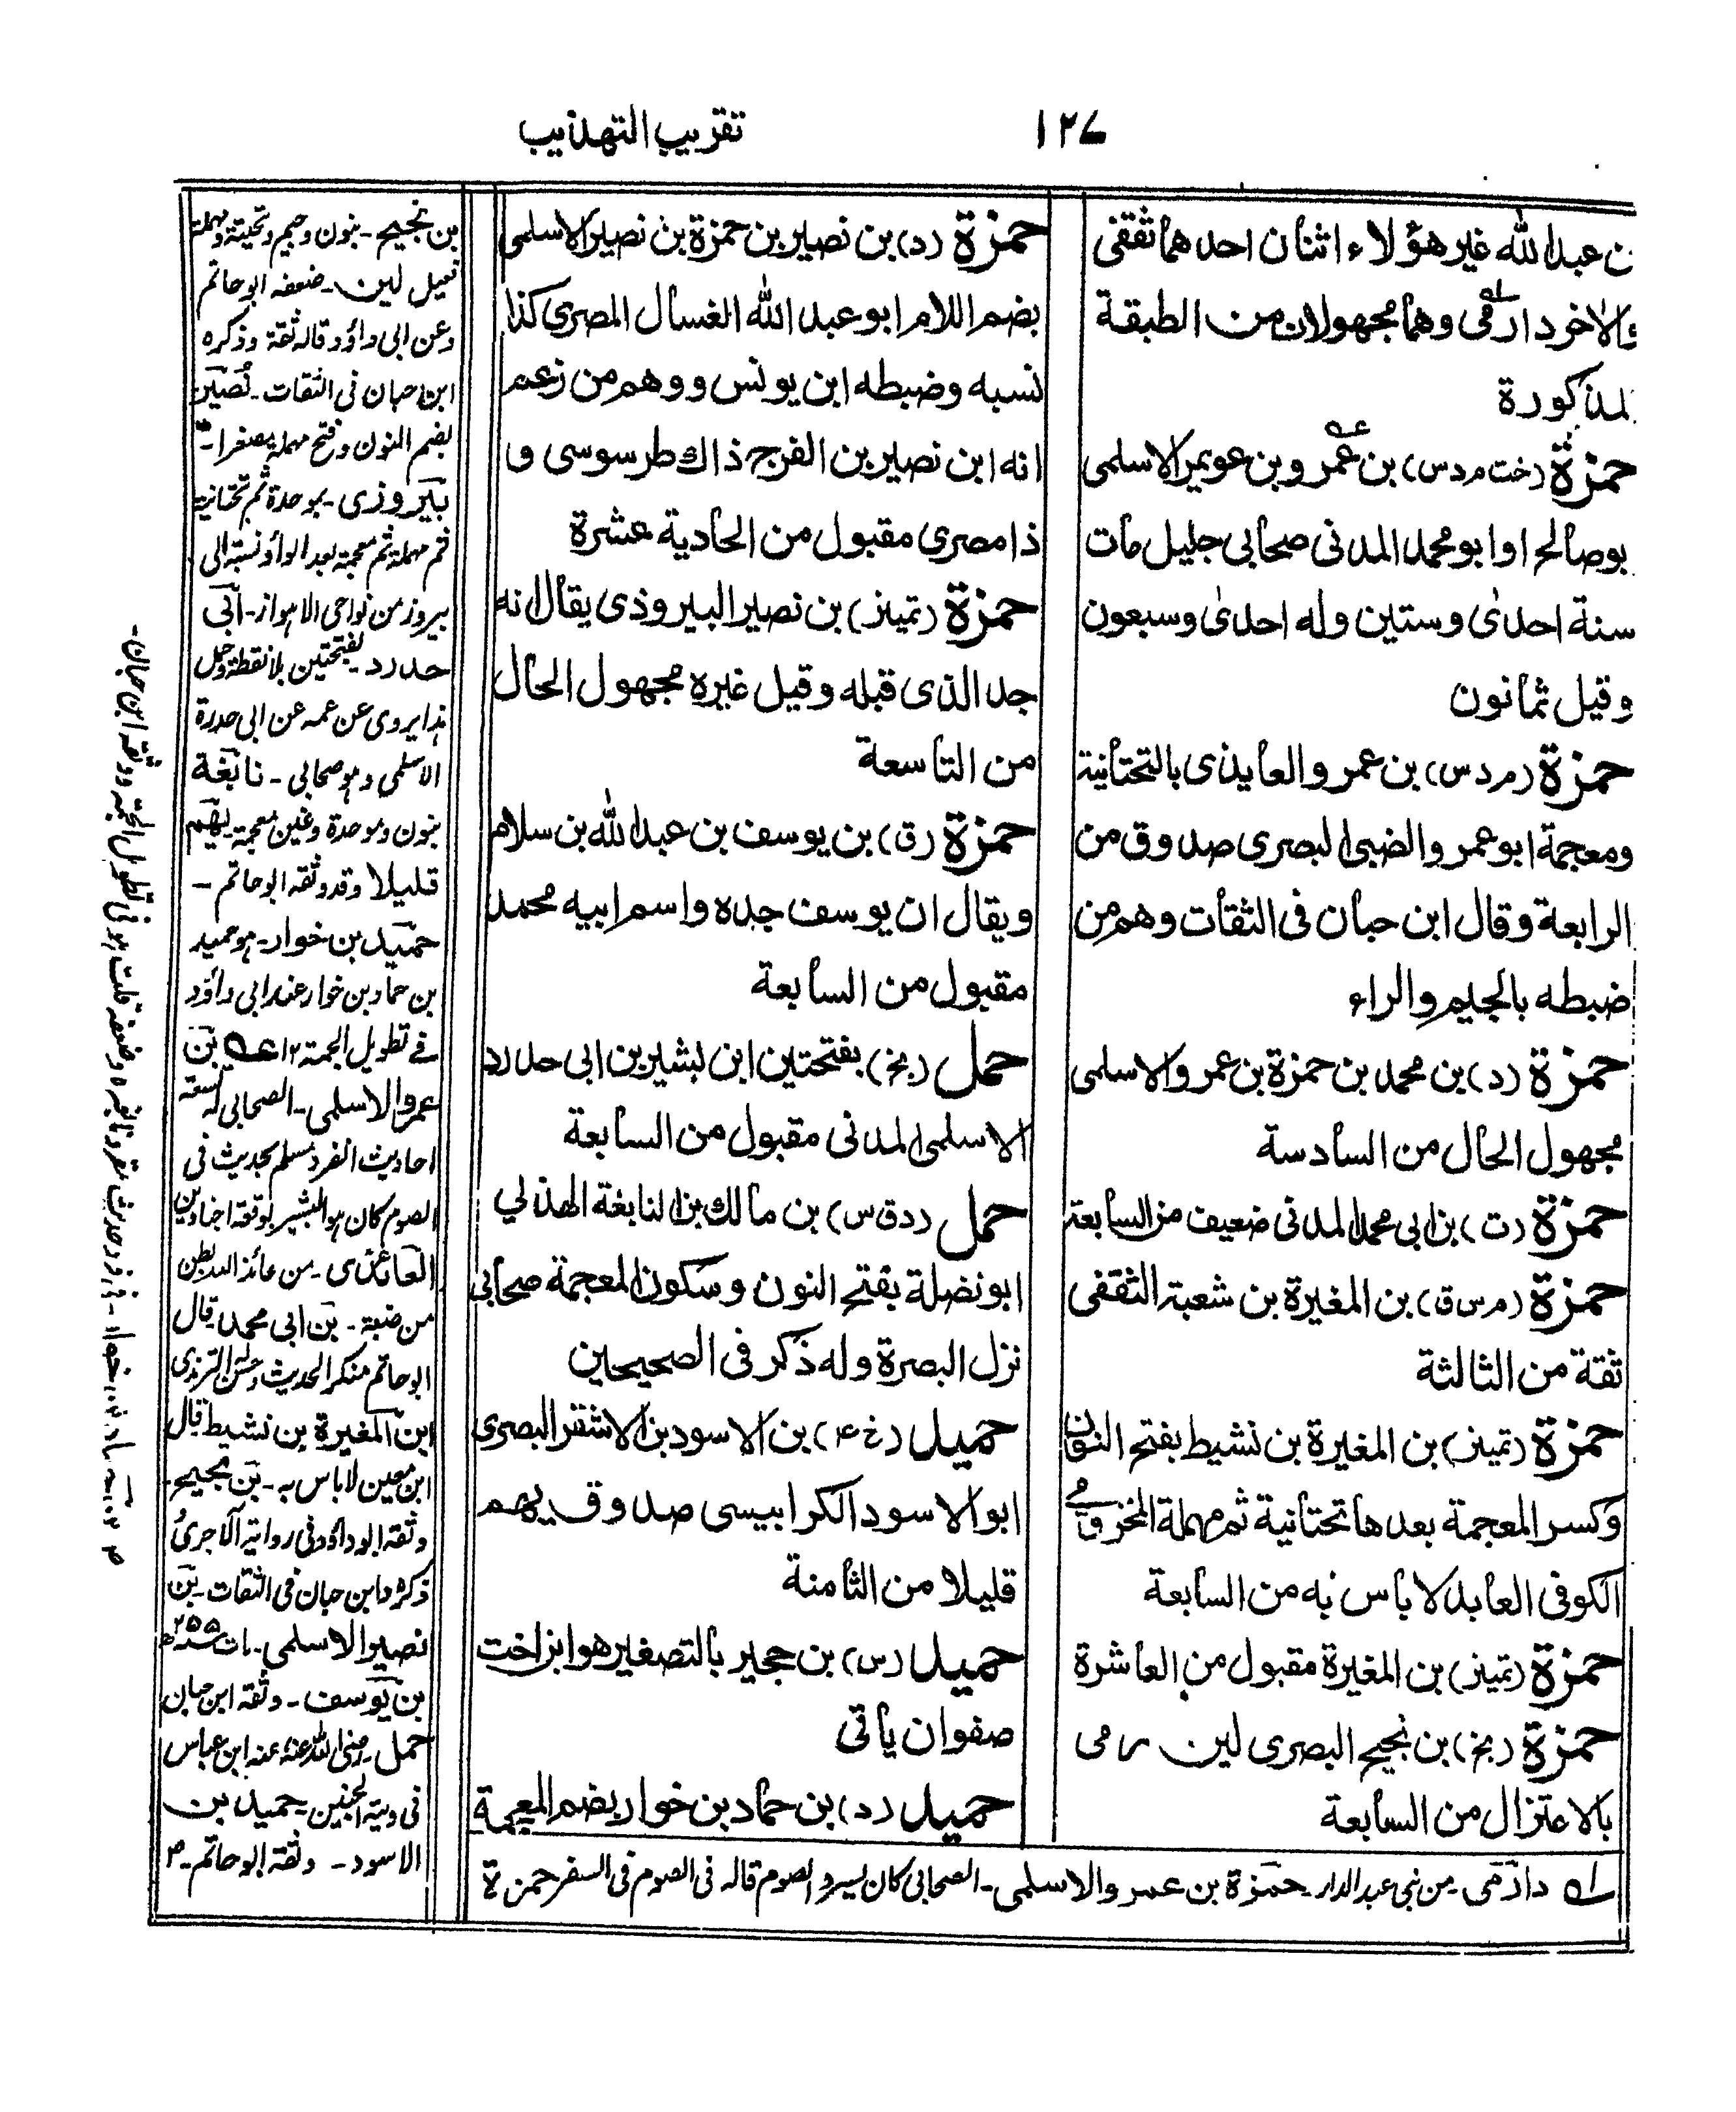 ١٢٧
تقريب التهذيب
بن عبد الله غير هؤلاء اثنان احدهما ثقفى
والاخر دارمى وهما مجهولان من الطبقة
المذكورة
حمزة (خت م د س) بن عمرو بن عويمر الاسلمى
ابو صالح او ابو محمد المدنى صحابى جليل مات
سنة احدى وستين وله احدى وسبعون
وقيل ثمانون
حمزة (م د س) بن عمرو العايذى بالتحتانية
ومعجمة ابو عمرو الضبى البصرى صدوق من
الرابعة وقال ابن حبان فى الثقات وهم من
ضبطه بالجيم والراء
حمزة (د) بن محمد بن حمزة بن عمرو الاسلمى
مجهول الحال من السادسة
حمزة (ت) بن ابى محمد المدنى ضعيف من السابعة
حمزة (م س ق) بن المغيرة بن شعبة الثقفى
ثقة من الثالثة
حمزة (تميز) بن المغيرة بن نشيط بفتح النون
وكسر المعجمة بعدها تحتانية ثم مهملة المخزومى
الكوفى العابد لا باس به من السابعة
حمزة (تميز) بن المغيرة مقبول من العاشرة
حمزة (بخ) بن نجيح البصرى لين رمى
بالاعتزال من السابعة
حمزة (د) بن نصير بن حمزة بن نصير الاسلمى
بضم اللام ابو عبد الله الغسال المصرى كذا
نسبه وضبطه ابن يونس ووهم من زعم
انه ابن نصير بن الفرج ذاك طرسوسى و
ذا مصرى مقبول من الحادية عشرة
حمزة (تميز) بن نصير البيروذى يقال انه
جد الذى قبله وقيل غيره مجهول الحال
من التاسعة
حمزة (ق) بن يوسف بن عبد الله بن سلام
ويقال ان يوسف جده واسم ابيه محمد
مقبول من السابعة
حمل (بخ) بفتحتين ابن بشير بن ابى حدرد
الاسلمى المدنى مقبول من السابعة
حمل (د ق س) بن مالك بن النابغة الهذلي
ابو نضلة بفتح النون وسكون المعجمة صحابى
نزل البصرة وله ذكر فى الصحيحين
حميد (خ ۴) بن الاسود بن الاشقر البصرى
ابو الاسود الكرابيسى صدوق يهم
قليلا من الثامنة
حميد (س) بن حجير بالتصغير هو ابن اخت
صفوان ياتى
حميد (د) بن حماد بن خوار بضم المعجمة
بن نجيح - بنون وجيم وتحتية ومهملة
لين - ضعفه ابو حاتم
وعن ابى داؤد قال ثقة وذكره
ابن حبان فى الثقات - نصير
بضم النون وفتح مهملة مصغرا -
بيروزى - بموحدة ثم تحتانية
ثم مهملة ثم معجمة بعد الواو نسبة الى
بيروز من نواحى الاهواز - ابى
حدرد - بفتحتين بلا نقطة وحمل
هذا يروى عن عمه عن ابى حدرة
الاسلمى وهو صحابى - نابغة
بنون وموحدة وغين معجمة - يهم
قليلا وقد وثقه ابو حاتم -
حميد بن خوار - هو حميد
بن حماد بن خوار عند ابى داؤد
فى تطويل الجمة ١٢ عه بن
عمرو الاسلمى - الصحابى له تسعة
احاديث انفرد مسلم بحديث فى
الصوم كان هو البشير بوقعة اجنادين
العائذى - من عائذ الله بطن
من ضبة - بن ابى محمد قال
ابو حاتم منكر الحديث وحسن له الترمذى
ابن المغيرة بن نشيط قال
ابن معين لا باس به - بن نجيح -
وثقه ابو داؤد فى رواية الآجرى
ذكره ابن حبان فى الثقات - بن
نصير الاسلمى - مات سنة ٢٥٥ ه
بن يوسف - وثقه ابن حبان
حمل - رضى الله عنه عنه ابن عباس
فى دية الجنين - حميد بن
الاسود - وثقه ابو حاتم - ۱۲
له دارمى - من بنى عبد الدار - حمزة بن عمرو الاسلمى - الصحابى كان يسرد الصوم قاله فى الصوم فى السفر حمزة